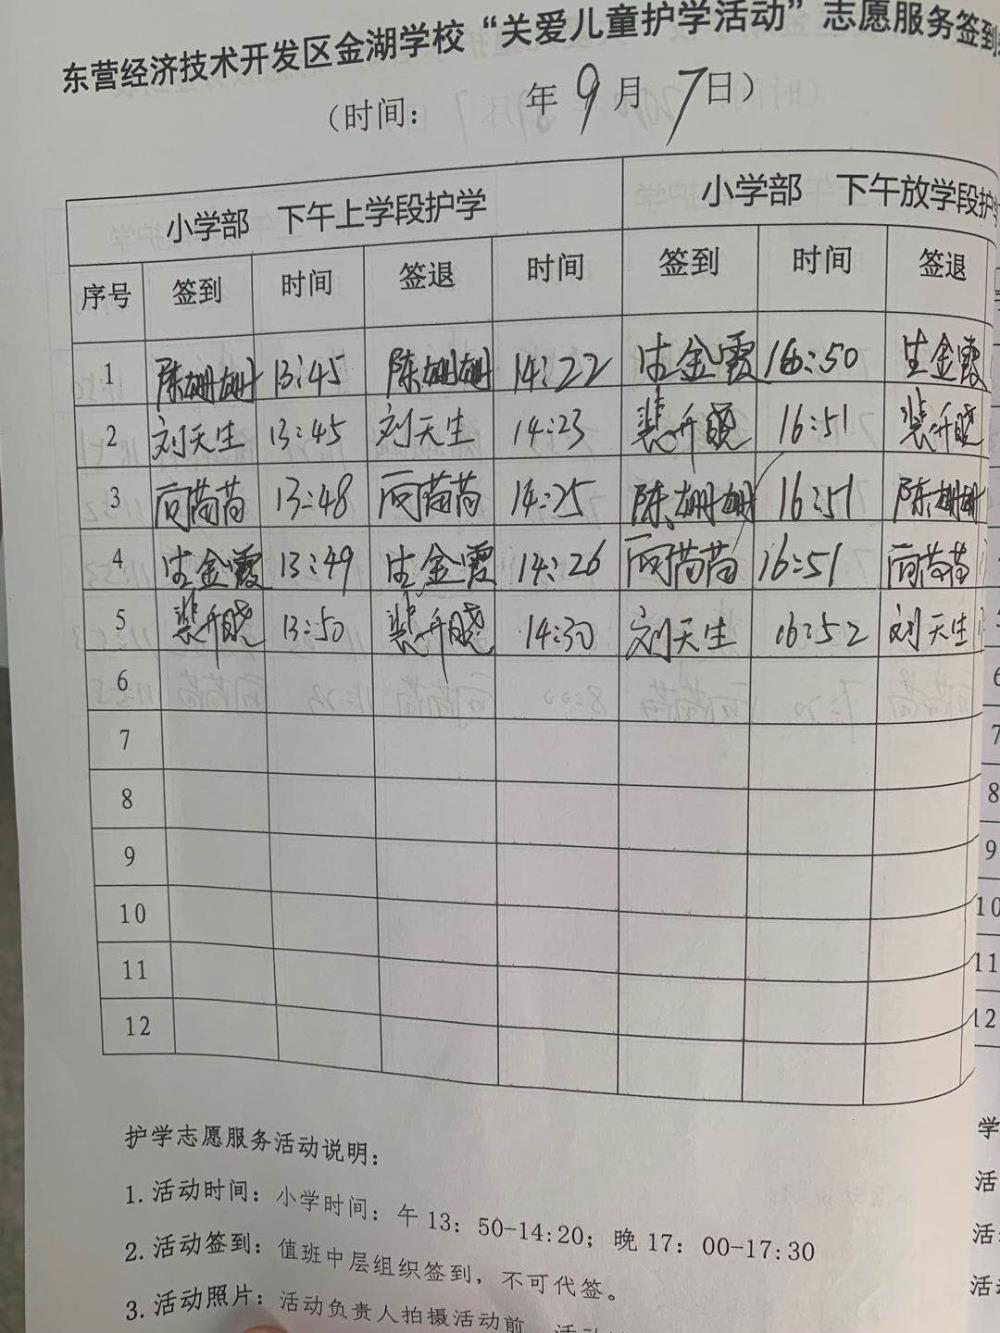 东营经济技术开发区金湖学校“关爱儿童护学活动”志愿服务签到
（时间： 年 9 月 7 日）
小学部 下午上学段护学 小学部 下午放学段护
序号 签到 时间 签退 时间 签到 时间 签退
1 陈姗姗 13:45 陈姗姗 14:22 生金霞 16:50 生金霞
2 刘天生 13:45 刘天生 14:23 裴升晓 16:51 裴升晓
3 苘苗苗 13:48 苘苗苗 14:25 陈姗姗 16:51 陈姗姗
4 生金霞 13:49 生金霞 14:26 苘苗苗 16:51 苘苗苗
5 裴升晓 13:50 裴升晓 14:30 刘天生 16:52 刘天生
6
7 7
8 8
9 9
10 10
11 11
12 12
护学志愿服务活动说明：
1.活动时间：小学时间：午 13：50-14:20；晚 17：00-17:30
2.活动签到：值班中层组织签到，不可代签。
3.活动照片：活动负责人拍摄活动前
学
活
活
活动